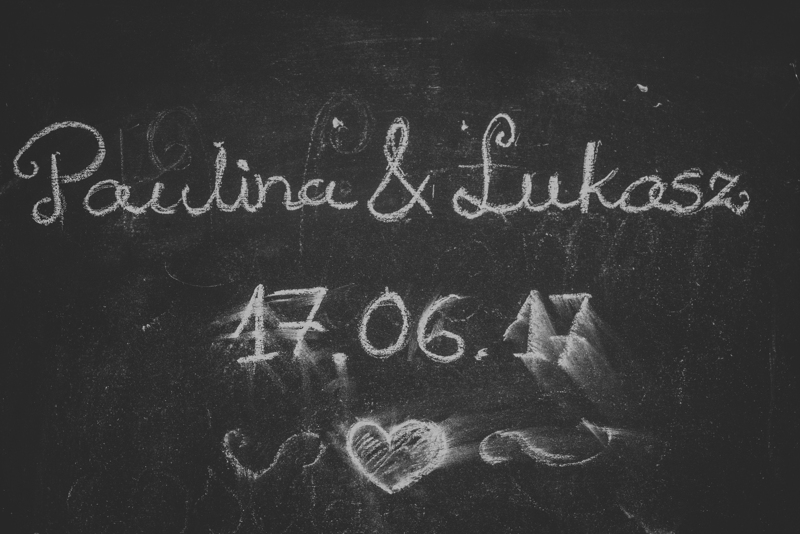 Paulina & Łukasz
17.06.17